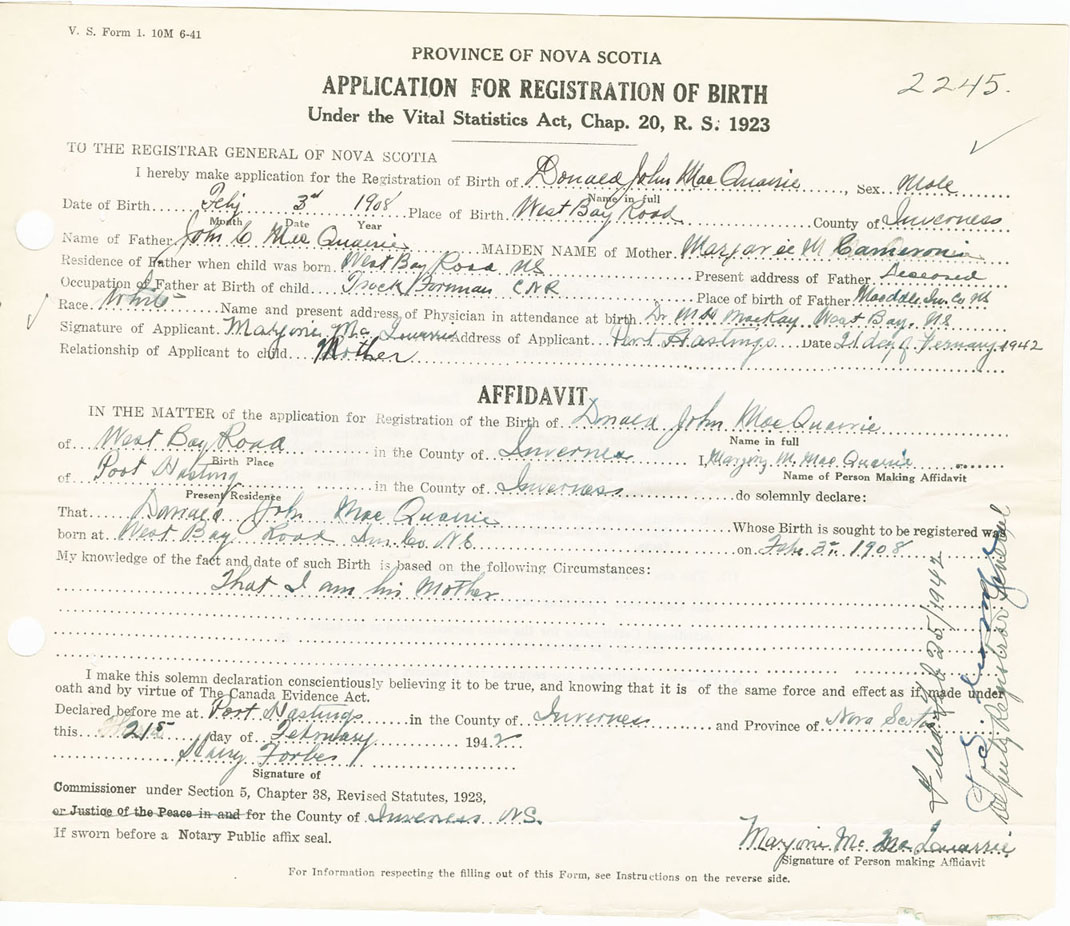 V. S. Form 1. 10M 6-41
PROVINCE OF NOVA SCOTIA
2245.
APPLICATION FOR REGISTRATION OF BIRTH
Under the Vital Statistics Act, Chap. 20, R. S. 1923
TO THE REGISTRAR GENERAL OF NOVA SCOTIA
I hereby make application for the Registration of Birth of Donald John MacQuarrie, Sex Male
Name in full
Date of Birth Feby 3rd 1908 Place of Birth West Bay Road County of Inverness
Month Date Year
Name of Father John C. MacQuarrie MAIDEN NAME of Mother M Cameron
Residence of Father when child was born West Bay Road NS Present address of Father Deceased
Occupation of Father at Birth of child Track Forman CNR Place of birth of Father In. Co NS
Race White Name and present address of Physician in attendance at birth Dr MacKay West Bay. NS
Signature of Applicant Marjorie Address of Applicant Port Hastings Date 21 day of 1942
Relationship of Applicant to child Mother
AFFIDAVIT
IN THE MATTER of the application for Registration of the Birth of Donald John MacQuarrie
Name in full
of West Bay Road in the County of Inverness I, M. MacQuarrie
Birth Place
Name of Person Making Affidavit
of Port Hasting in the County of Inverness do solemnly declare:
Present Residence
That Donald John MacQuarrie Whose Birth is sought to be registered was
born at West Bay Road In. Co NS on Feb. 3r. 1908
My knowledge of the fact and date of such Birth is based on the following Circumstances:
That I am his Mother
I make this solemn declaration conscientiously believing it to be true, and knowing that it is of the same force and effect as if made under
oath and by virtue of The Canada Evidence Act.
Declared before me at Port Hastings in the County of Inverness and Province of Nova Scotia
this 21st day of February 1942
Harry Forbes
Signature of
Commissioner under Section 5, Chapter 38, Revised Statutes, 1923,
or Justice of the Peace in and for the County of Inverness NS.
If sworn before a Notary Public affix seal.
Marjorie
Signature of Person making Affidavit
For Information respecting the filling out of this Form, see Instructions on the reverse side.
Filed Feb 25/1942
Deputy Registrar General